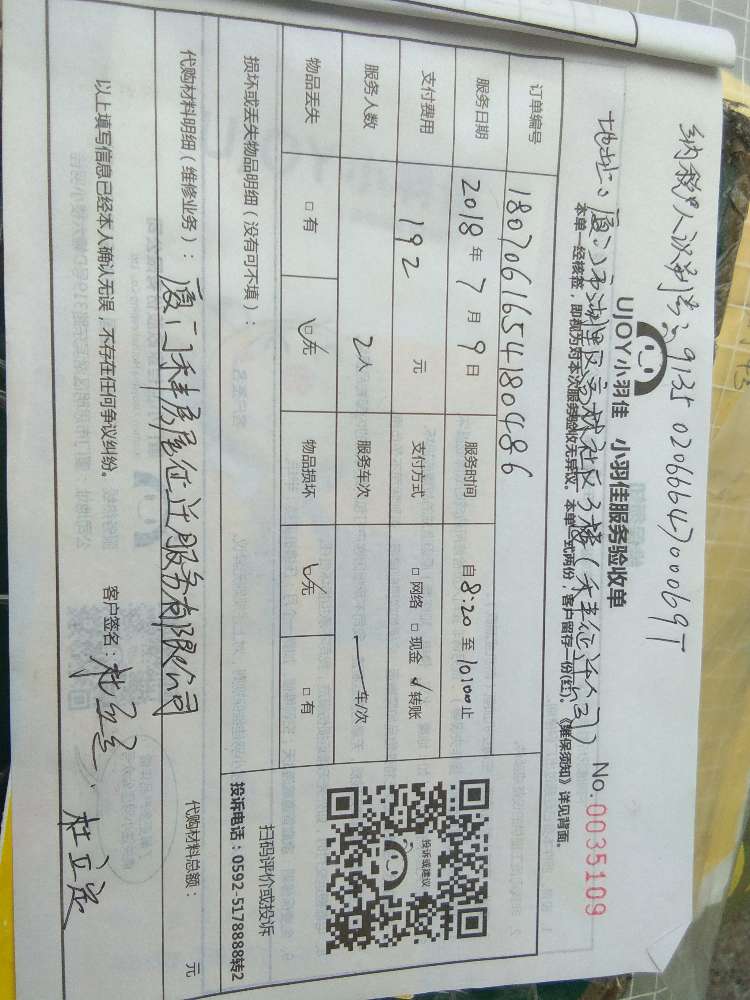 纳税人识别号：91350206664700069T
UJOY小羽佳 小羽佳服务验收单 No.0035109
地址：厦门市湖里区 社区 3楼（禾祥征迁公司）
本单一经核签，即视为对本次服务验收无异议。本单一式两份，客户留存一份(红)。《维保须知》详见背面。
订单编号 180706165418 0486
服务日期 2018年7月9日 服务时间 自8:20至10:00止
支付费用 192元 支付方式 □网络 □现金 ☑转账
服务人数 2人 服务车次 一车/次
物品丢失 □有 ☑无 物品损坏 ☑无 □有
投诉或建议
扫码评价或投诉
投诉电话：0592-5178888转2
损坏或丢失物品明细（没有可不填）：
代购材料明细（维修业务）： 代购材料总额： 元
厦门禾祥房屋征迁服务有限公司
以上填写信息已经本人确认无误，不存在任何争议纠纷。 客户签名：